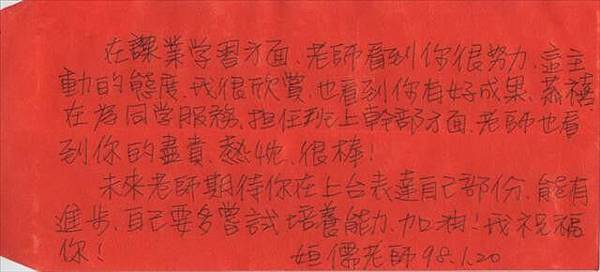 在課業学習方面、老師看到你很努力、盡主
動的態度、我很欣賞、也看到你有好成果、恭禧、
在为同学服務、担任班上幹部方面、老師也看
到你的盡責、熱忱、很棒！
未來老師期待你在上台表達自己部份、能有
進步、自己要多嘗試培養能力、加油！我祝福
你！ 姮儒老師 98.1.20